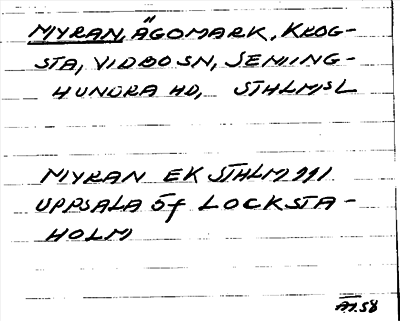 MYRAN, ÄGOMARK, KROG-
STA, VIDBO SN, SEMING-
HUNDRA HD, STHLMS L
MYRAN EK STHLM 111
UPPSALA 5f LOCKSTA-
HOLM